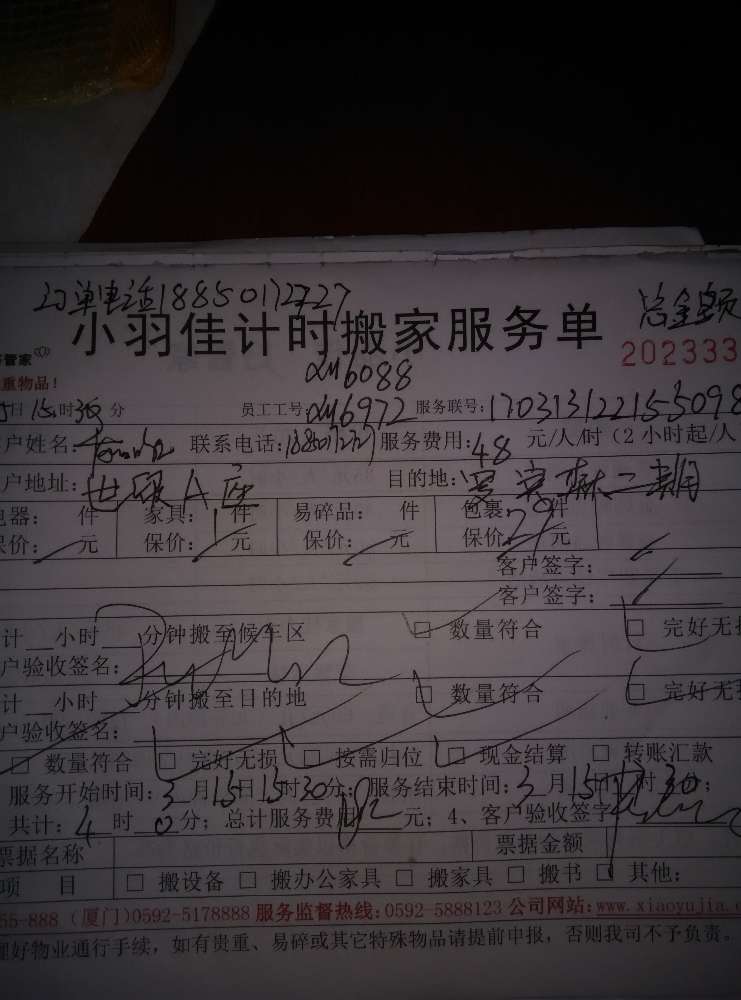 订单电话18850172727
总金额
小羽佳计时搬家服务单
管家
202333
重物品！
6088
日15时30分 员工工号: 6972 服务联号:170313122155098
户姓名: 联系电话:18850172727 服务费用:48 元/人/时（2小时起/人
户地址:世纪A座 目的地: 二期
电器： 件 家具：1件 易碎品： 件 包裹：29件
保价： 元 保价： 元 保价： 元 保价： 元
客户签字：
客户签字：
计 小时 分钟搬至候车区 □ 数量符合 □ 完好无损
户验收签名：
计 小时 分钟搬至目的地 □ 数量符合 □ 完好无
户验收签名：
□ 数量符合 □ 完好无损 □ 按需归位 □ 现金结算 □ 转账汇款
服务开始时间：3月15日15时30分；服务结束时间：3月15日 时30分；
共计：4时0分；总计服务费用 元；4、客户验收签字
票据名称 票据金额
项 目 □ 搬设备 □ 搬办公家具 □ 搬家具 □ 搬书 □ 其他：
55-888（厦门）0592-5178888 服务监督热线:0592-5888123 公司网站:www.xiaoyujia.c
理好物业通行手续，如有贵重、易碎或其它特殊物品请提前申报，否则我司不予负责。